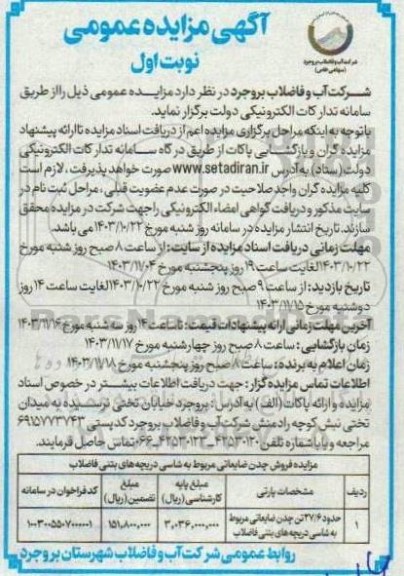 آگهی مزایده عمومی
نوبت اول
شرکت آب و فاضلاب بروجرد
(سهامی خاص)
شرکت آب و فاضلاب بروجرد در نظر دارد مزایده عمومی ذیل را از طریق
سامانه تدارکات الکترونیکی دولت برگزار نماید.
با توجه به اینکه مراحل برگزاری مزایده اعم از دریافت اسناد مزایده تا ارائه پیشنهاد
مزایده گران و بازگشایی پاکات از طریق درگاه سامانه تدارکات الکترونیکی
دولت (ستاد) به آدرس www.setadiran.ir صورت خواهد پذیرفت، لازم است
کلیه مزایده گران واجد صلاحیت در صورت عدم عضویت قبلی، مراحل ثبت نام در
سایت مذکور و دریافت گواهی امضاء الکترونیکی را جهت شرکت در مزایده محقق
سازند. تاریخ انتشار مزایده در سامانه روز شنبه مورخ ۱۴۰۳/۱۰/۲۲ می باشد.
مهلت زمانی دریافت اسناد مزایده از سایت: از ساعت ۸ صبح روز شنبه مورخ
۱۴۰۳/۱۰/۲۲ لغایت ساعت ۱۹ روز پنجشنبه مورخ ۱۴۰۳/۱۱/۰۴
تاریخ بازدید: از ساعت ۹ صبح روز شنبه مورخ ۱۴۰۳/۱۰/۲۲ لغایت ساعت ۱۴ روز
دوشنبه مورخ ۱۴۰۳/۱۱/۱۵
آخرین مهلت زمانی ارائه پیشنهادات قیمت: تا ساعت ۱۴ روز سه شنبه مورخ ۱۴۰۳/۱۱/۱۶
زمان بازگشایی: ساعت ۸ صبح روز چهارشنبه مورخ ۱۴۰۳/۱۱/۱۷
زمان اعلام به برنده: ساعت ۸ صبح روز پنجشنبه مورخ ۱۴۰۳/۱۱/۱۸
اطلاعات تماس مزایده گزار: جهت دریافت اطلاعات بیشتر در خصوص اسناد
مزایده و ارائه پاکات (الف) به آدرس: بروجرد خیابان تختی نرسیده به میدان
تختی نبش کوچه رادمنش شرکت آب و فاضلاب بروجرد کدپستی ۶۹۱۵۷۷۳۷۴۳
مراجعه و یا با شماره تلفن ۴۲۵۳۰۱۲۰_۴۲۵۳۰۱۲۳_۰۶۶ تماس حاصل فرمایند.
مزایده فروش چدن ضایعاتی مربوط به شاسی دریچه های بتنی فاضلاب
ردیف مشخصات پارتی مبلغ پایه کارشناسی (ریال) مبلغ تضمین (ریال) کد فراخوان در سامانه
۱ حدود ۳۷/۶ تن چدن ضایعاتی مربوط به شاسی دریچه های بتنی فاضلاب ۳,۰۳۶,۰۰۰,۰۰۰ ۱۵۱,۸۰۰,۰۰۰ ۱۰۰۳۰۰۵۵۰۷۰۰۰۰۰۱
روابط عمومی شرکت آب و فاضلاب شهرستان بروجرد